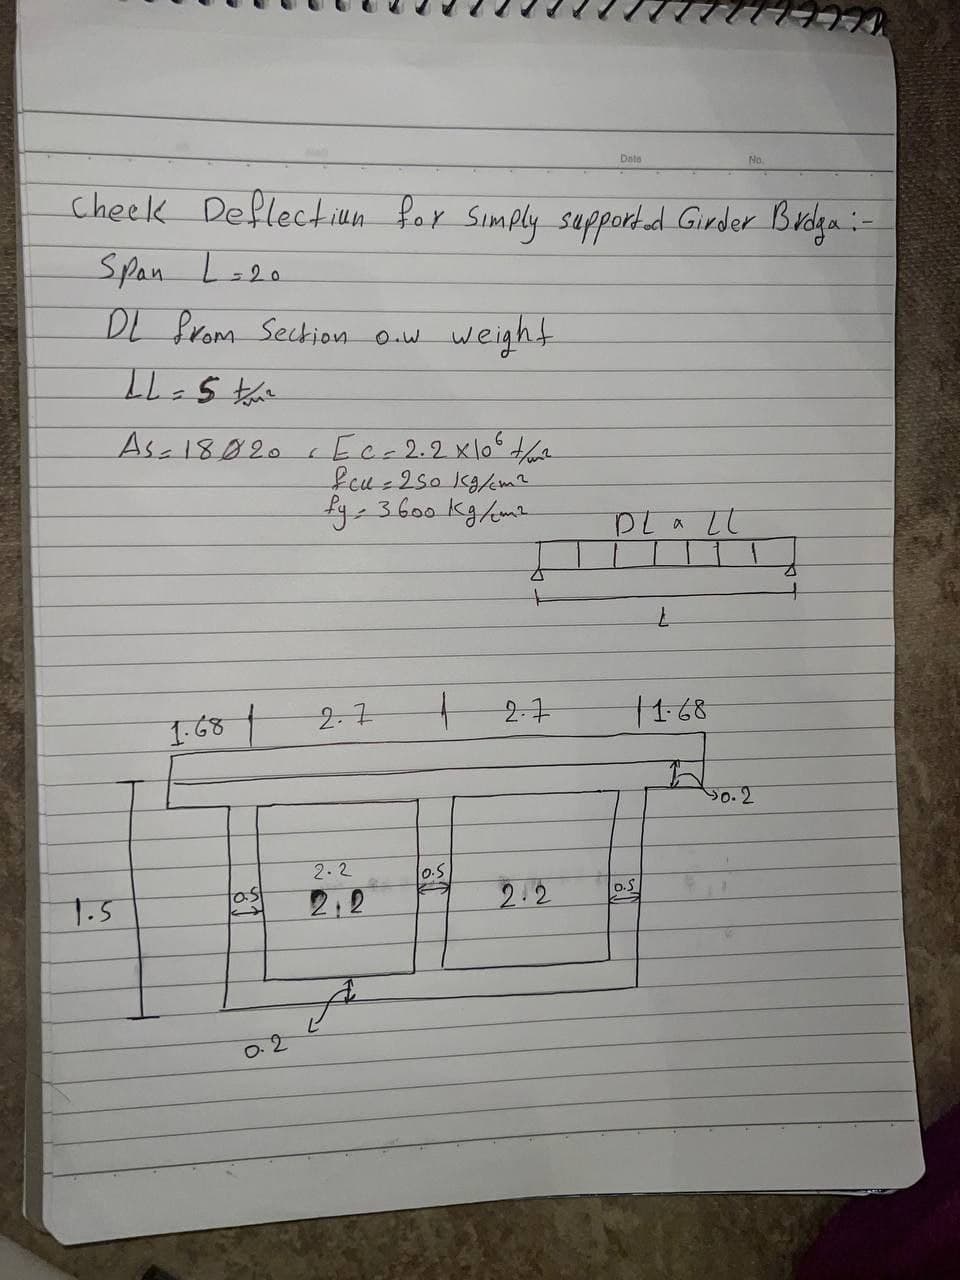 Date No.
Check Deflectiun for Simply supported Girder Brdga :-
Span L = 20
DL from Section o.w weight
LL = 5 t/m²
As = 18 Ø 20 , Ec = 2.2 x10⁶ t/m²
fcu = 250 Kg/cm²
fy = 3600 Kg/cm²
DL a LL
L
1.68 2.7 2.7 1.68
0.2
2.2
0.5 0.5 0.5
2.2 2.2
1.5
0.2